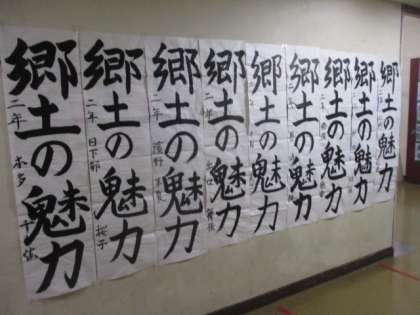 郷土の魅力
二年 本多
郷土の魅力
二年 日下部 桜子
郷土の魅力
郷土の魅力
郷土の魅力
郷土の魅力
郷土の魅力
郷土の魅力
郷土の魅力